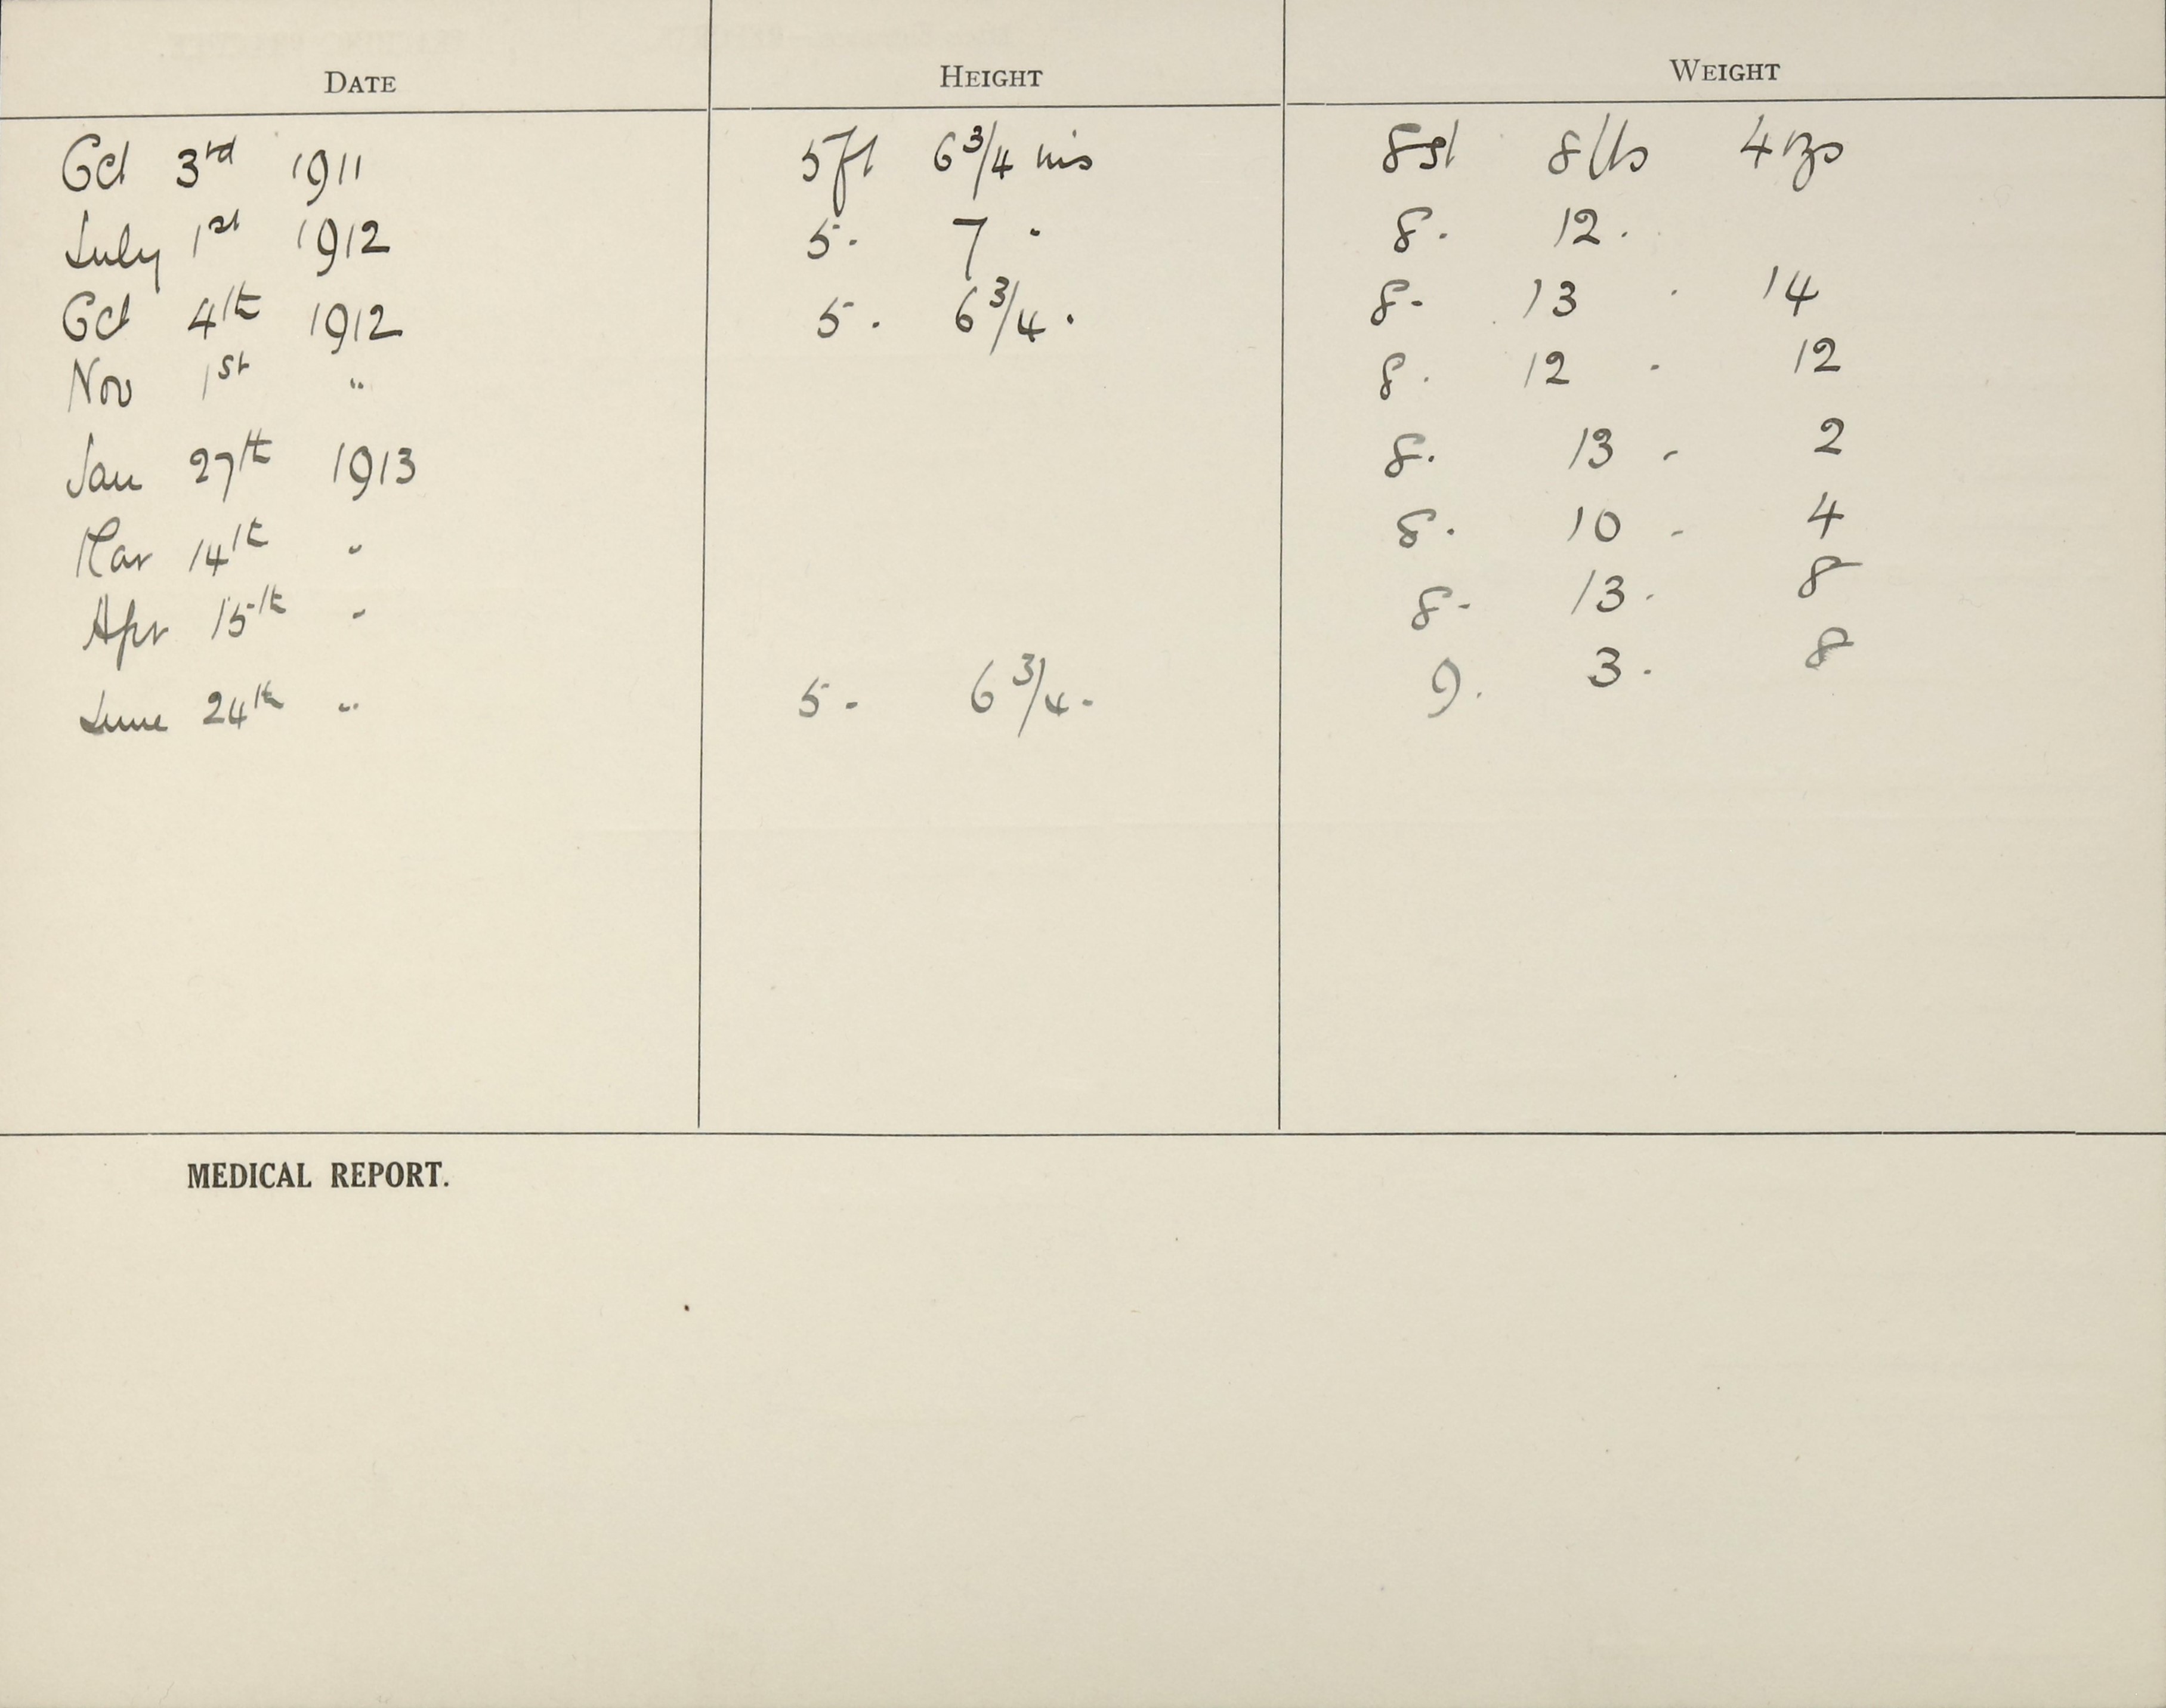 DATE HEIGHT WEIGHT
Oct 3rd 1911 5ft 6 3/4 ins 8st 8lbs 4ozs
July 1st 1912 5. 7 " 8. 12.
Oct 4th 1912 5. 6 3/4 . 8. 13 . 14
Nov 1st " 8. 12 . 12
Jan 27th 1913 8. 13 . 2
Mar 14th " 8. 10 . 4
Apr 15th " 8. 13. 8
June 24th " 5. 6 3/4. 9. 3. 8
MEDICAL REPORT.